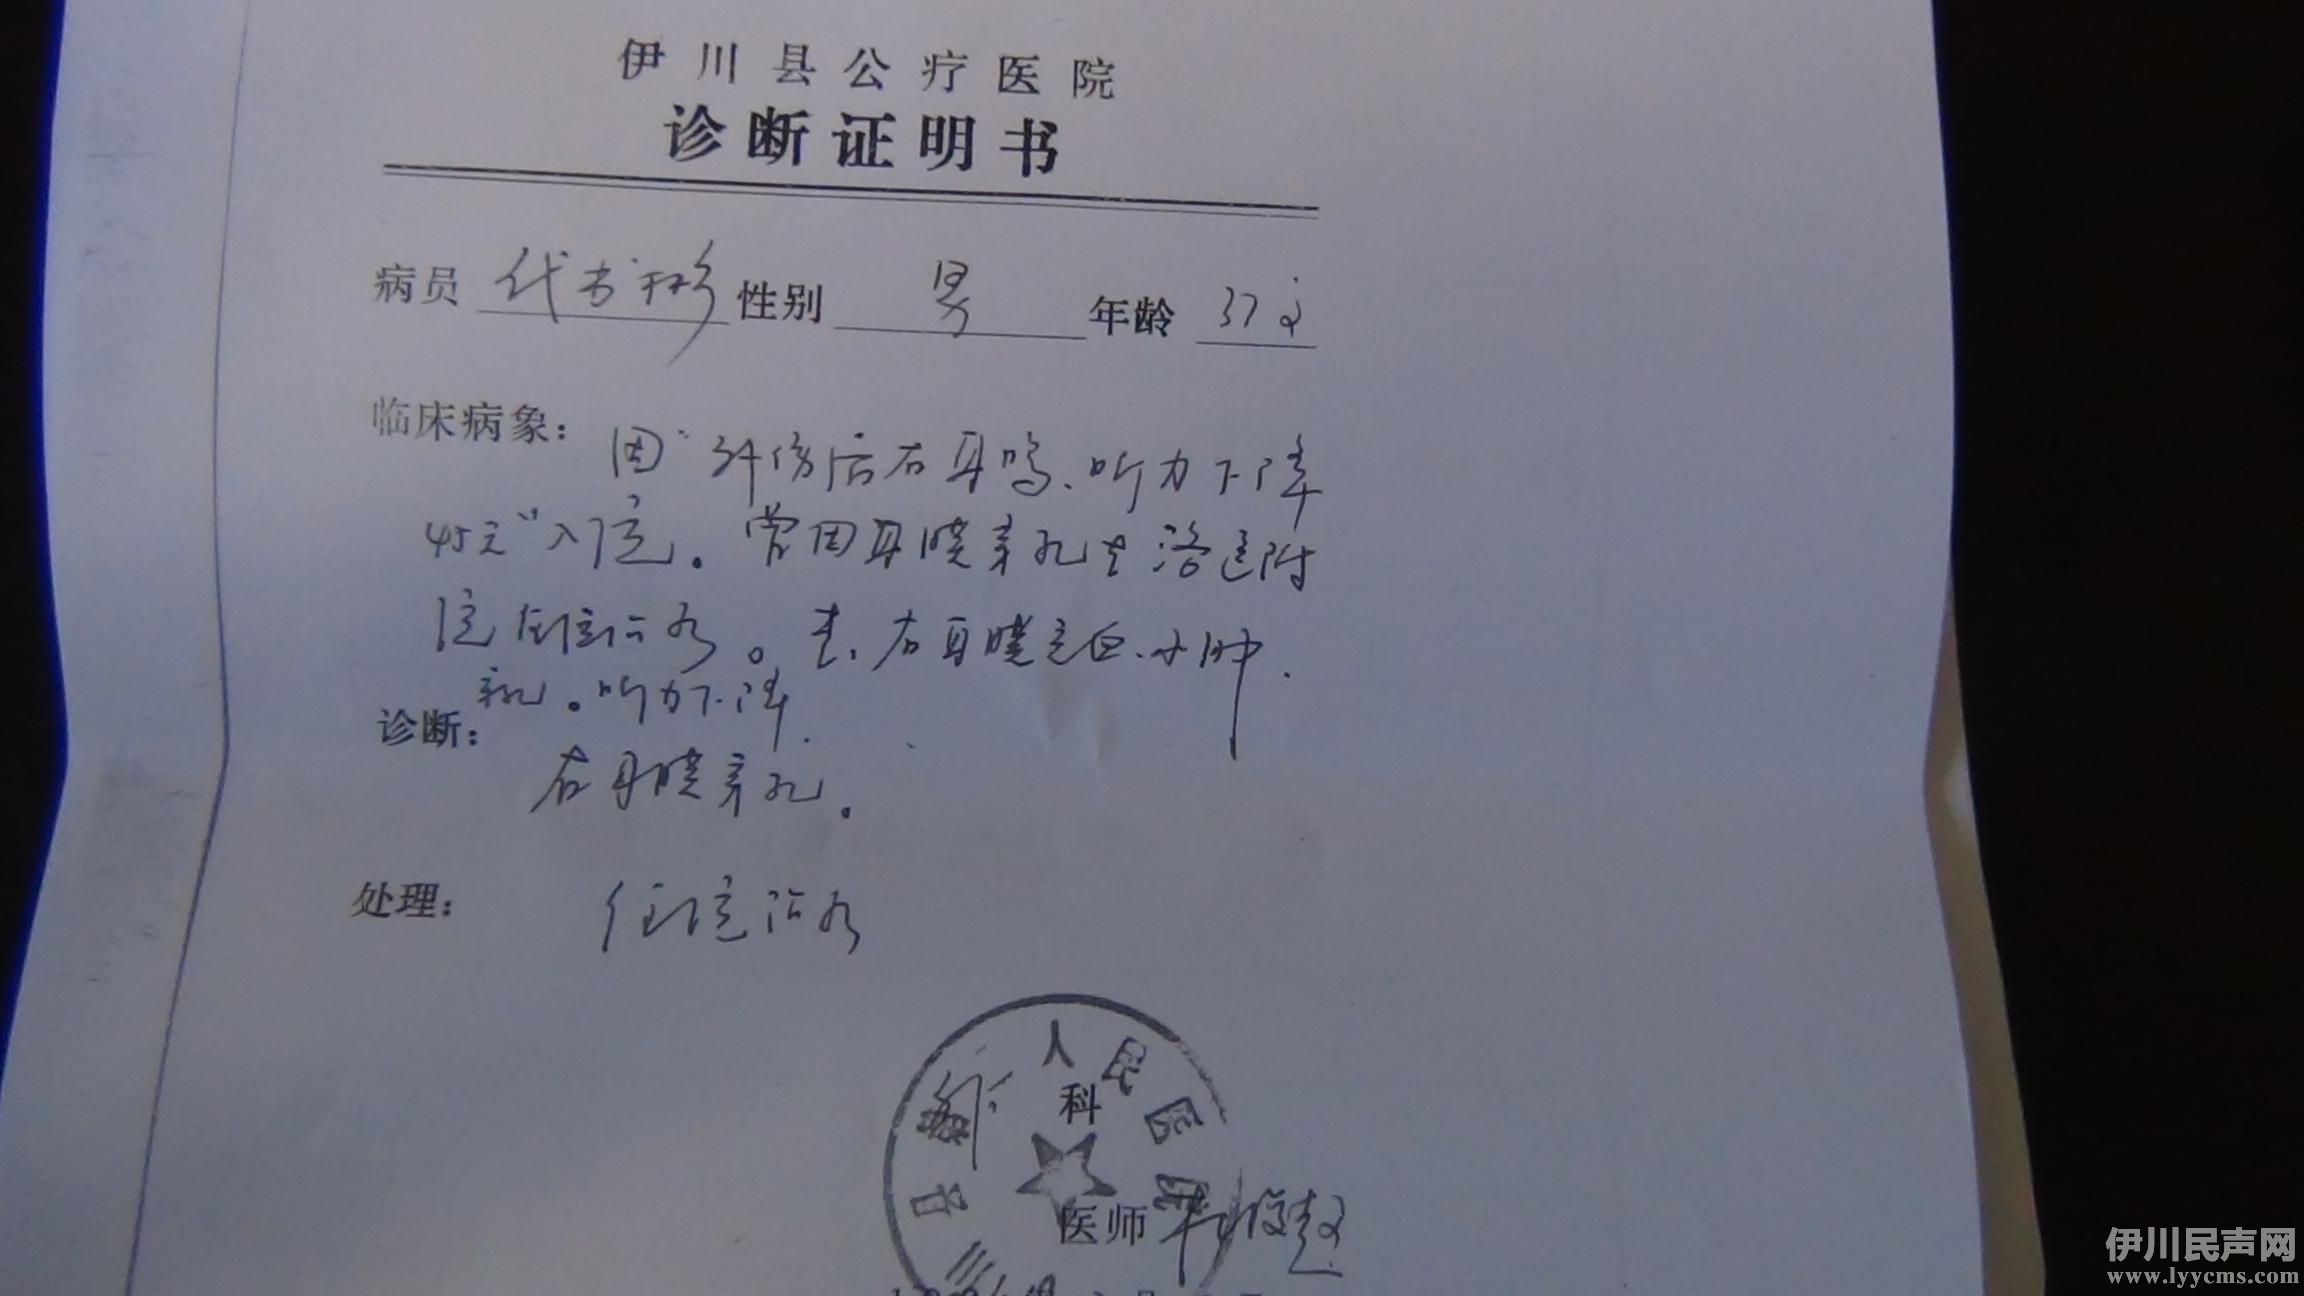 伊川县公疗医院
诊断证明书
病员 代书彬 性别 男 年龄 37岁
临床病象: 因"外伤后右耳鸣、听力下降
45天"入院。曾因耳膜穿孔在洛医附
院住院治疗。查:右耳膜充血、水肿.
穿孔。听力下降.
诊断:
右耳膜穿孔。
处理: 住院治疗
人民医院
科
医师
伊川民声网
www.lyycms.com